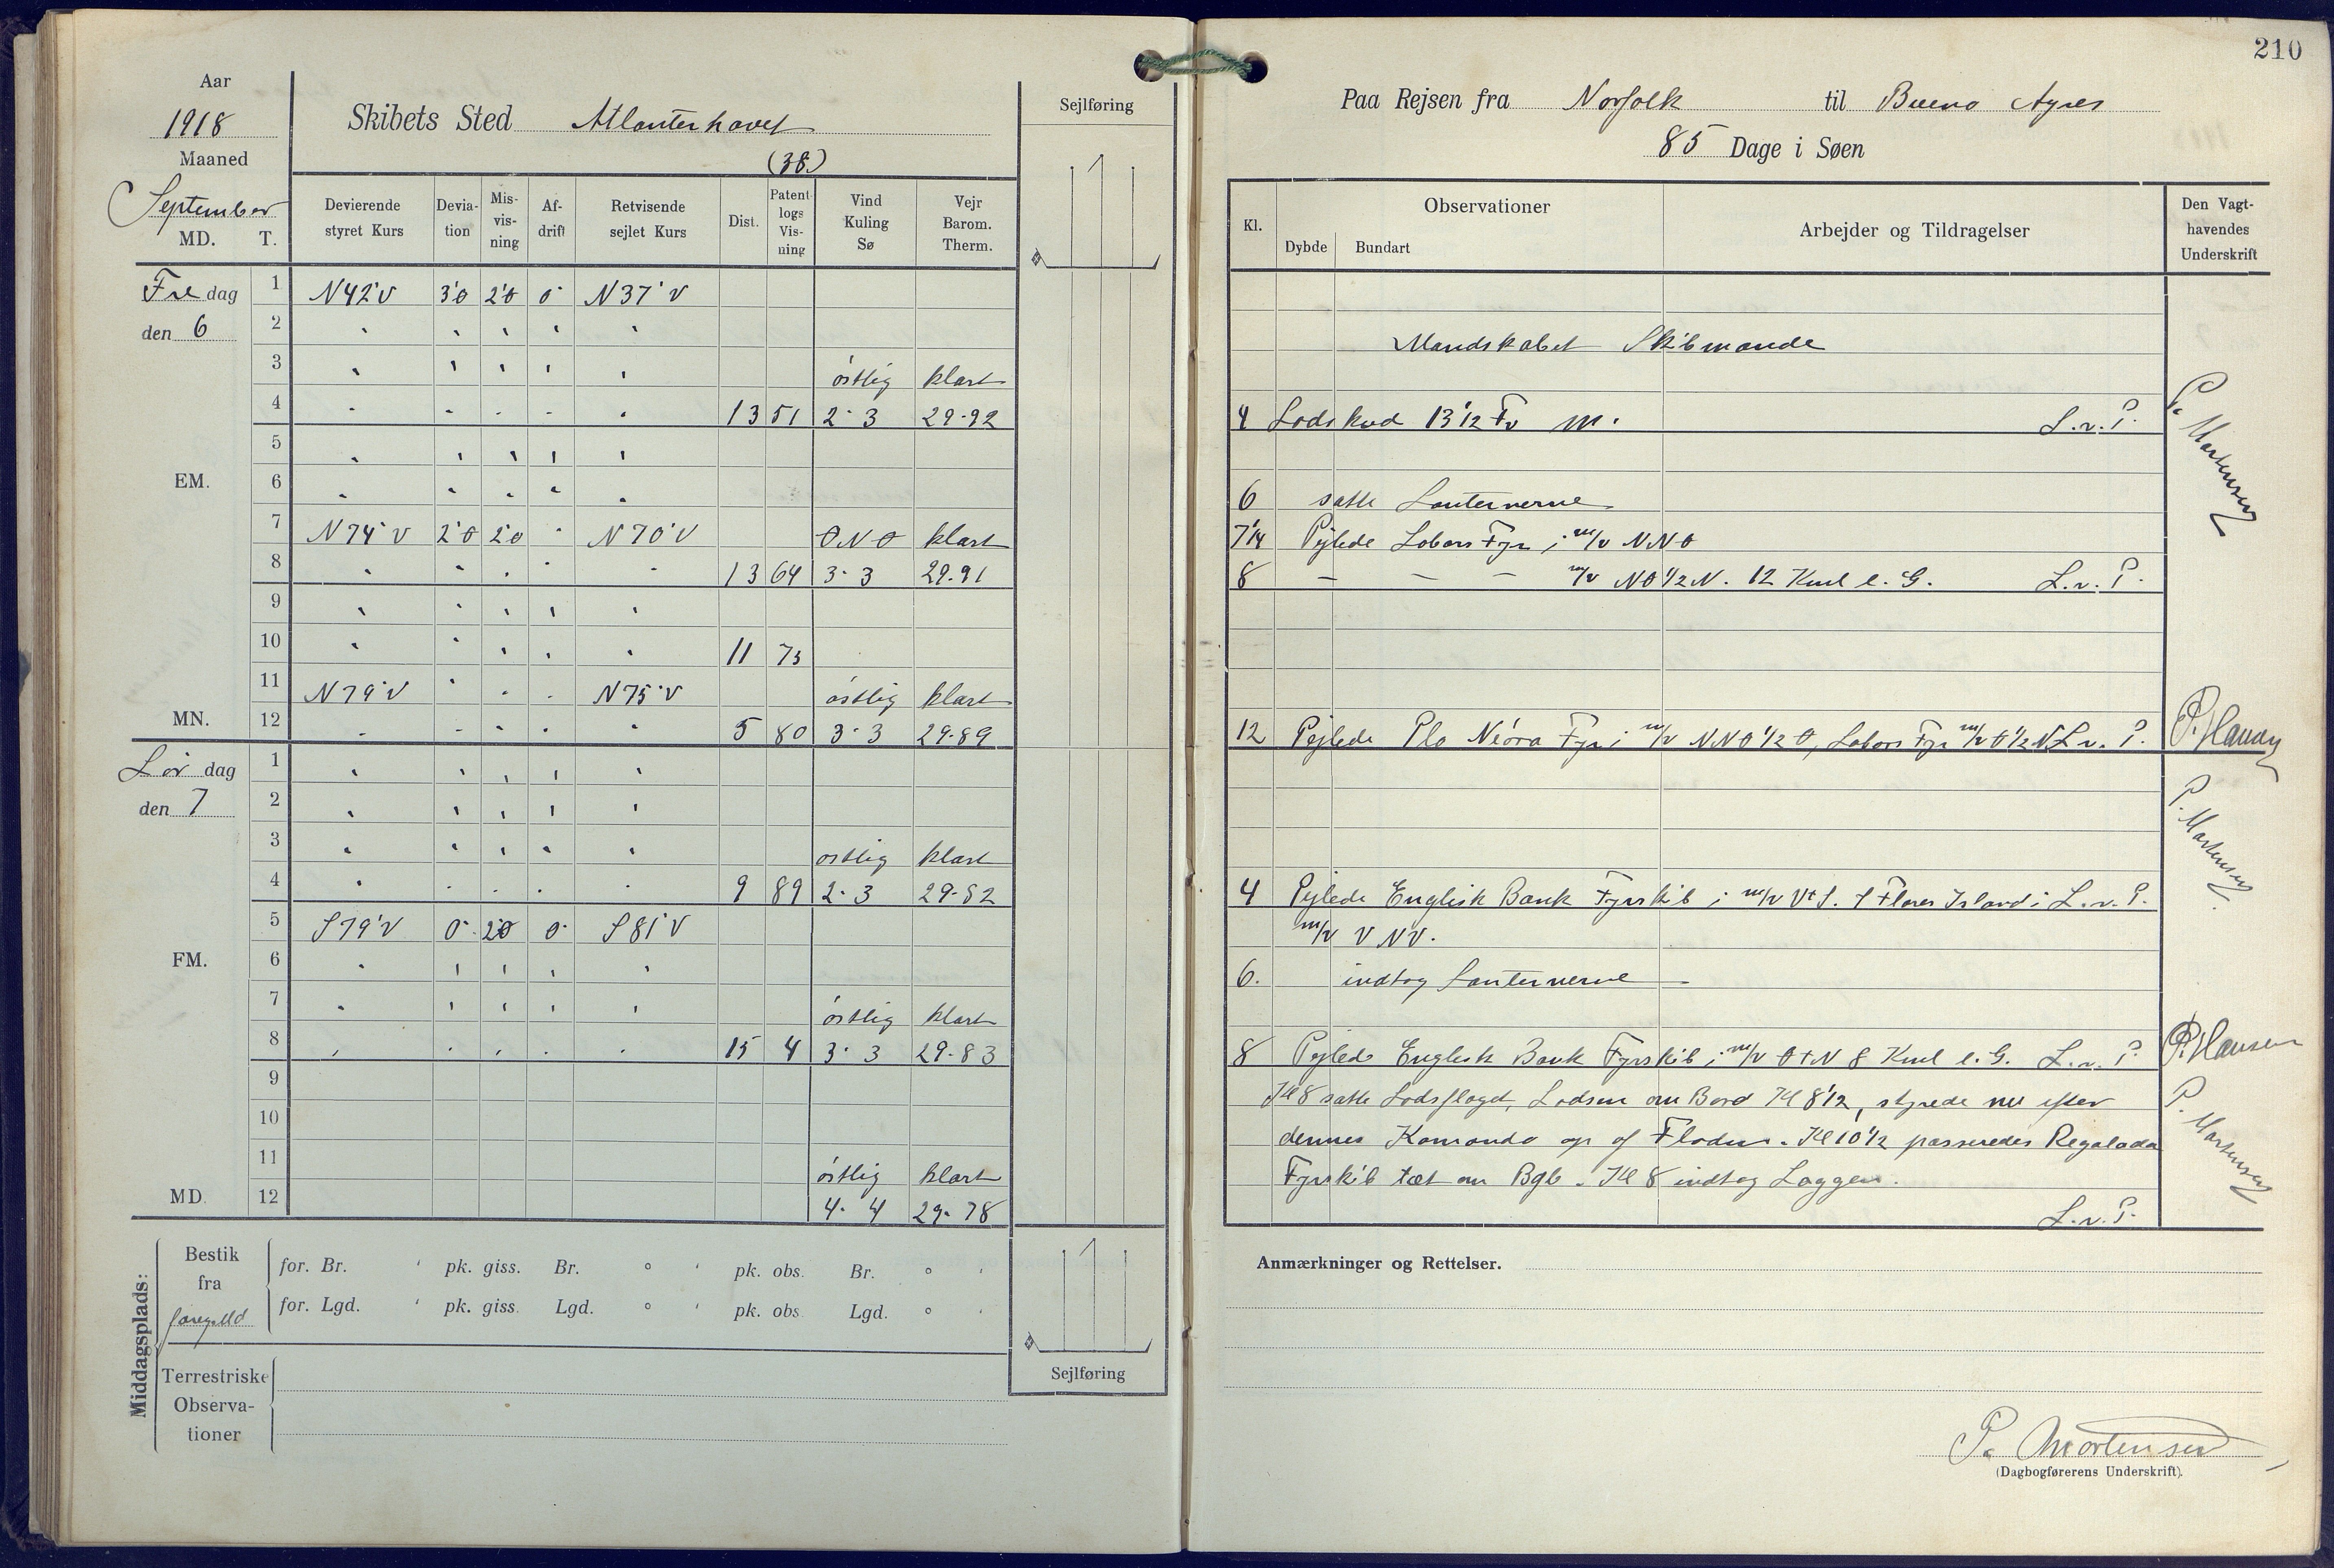 Aar
1918
Maaned
September
MD. T.
Skibets Sted Atlanterhavet
(38)
Sejlføring
Devierende styret Kurs
Deviation
Misvisning
Afdrift
Retvisende sejlet Kurs
Dist.
Patentlogs Visning
Vind Kuling Sø
Vejr Barom. Therm.
Fredag den 6
1 N42°V 3°0 2°0 0° N37°V
2 " " " " "
3 " " " " " östlig klart
4 " " " " " 13 51 2-3 29-92
5 " " " " "
EM.
6 " " " " "
7 N74°V 2°0 2°0 " N70°V ONO klart
8 " " " " " 13 64 3-3 29-91
9 " " " " "
10 " " " " " 11 75
11 N79°V " " " N75°V östlig klart
MN. 12 " " " " " 5 80 3-3 29-89
Lördag den 7
1 " " " " "
2 " " " " "
3 " " " " " östlig klart
4 " " " " " 9 89 2-3 29-82
5 S79°V 0° 20 0° S81°V
FM. 6 " " " " "
7 " " " " " östlig klart
8 " " " " " 15 4 3-3 29-83
9
10
11 östlig klart
MD. 12 4-4 29-78
Middagsplads:
Bestik fra
for. Br. ' pk. giss. Br. ° ' pk. obs. Br. ° '
for. Lgd. ' pk. giss. Lgd. ° ' pk. obs. Lgd. ° '
Terrestriske Observationer
Sejlføring
210
Paa Rejsen fra Norfolk til Bueno Ayres
85 Dage i Søen
Kl.
Observationer
Dybde Bundart
Arbejder og Tildragelser
Den Vagthavendes Underskrift
Mandskabet Skibmande
4 Lodskud 13 1/2 Fv m. L.v.P.
P. Mortensen
6 satte Lanternerne
7 1/4 Pejlede Lobos Fyr i m/v NNO
8 — — — m/v NO 1/2 N. 12 Kml e. G. L.v.P.
12 Pejlede Fyr i m/v NNO 1/2 O, Lobos Fyr m/v O 1/2 N L.v.P. P. Hansen
P. Mortensen
4 Pejlede Englisk Bank Fyrskib i m/v VtS. & Flores Island i L.v.P.
m/v VNV.
6. indtog Lanternerne —
8 Pejlede Englisk Bank Fyrskib i m/v OtN 8 Kml e. G. L.v.P. P. Hansen
Kl 8 satte Lodsflaget, Lodsen om Bord Kl 8 1/2, styrede nu efter
dennes Komando op af Floden. Kl 10 1/2 passeredes Regalada
Fyrskib tæt om Bgb. Kl 8 indtog Loggen.
L.v.P.
P. Mortensen
Anmærkninger og Rettelser.
P. Mortensen
(Dagbogførerens Underskrift).